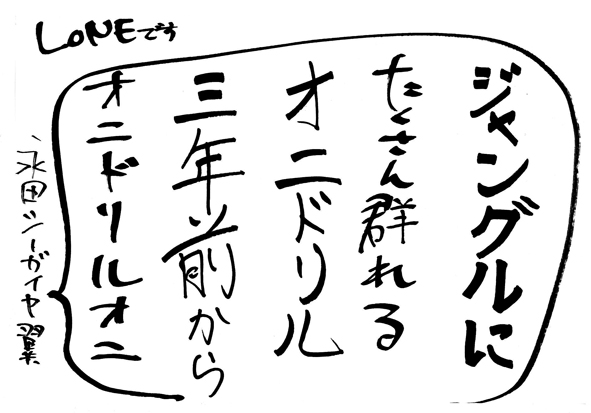 LoNEです
ジャングルに
たくさん群れる
オニドリル
三年前から
オニドリルオニ
永田シーガイヤ翼